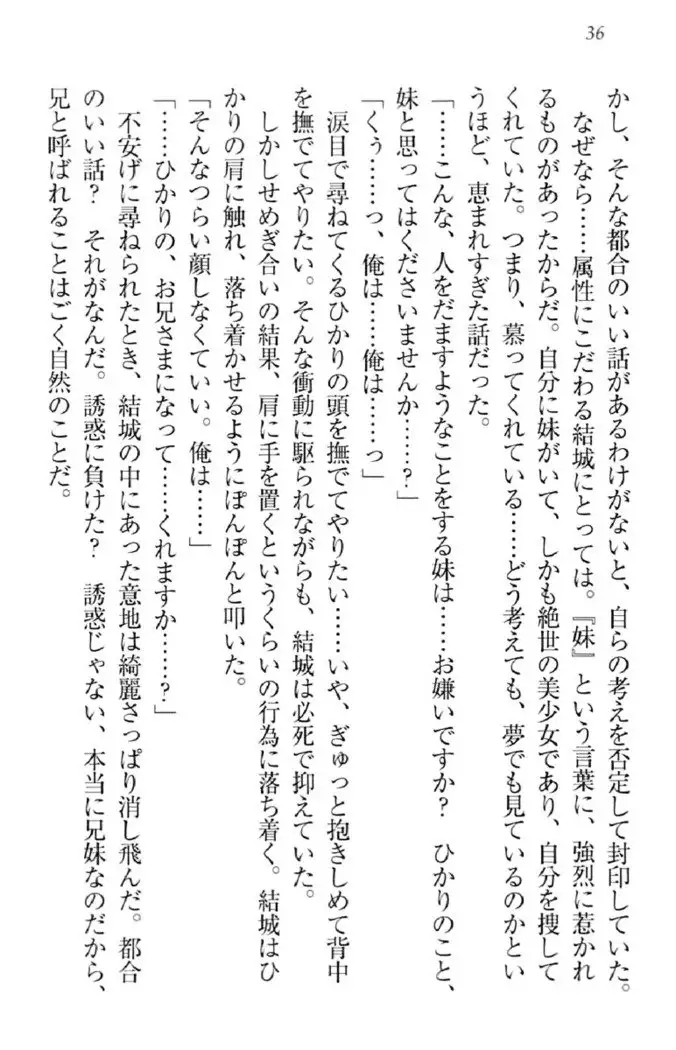 36
かし、そんな都合のいい話があるわけがないと、自らの考えを否定して封印していた。
なぜなら……属性にこだわる結城にとっては。『妹』という言葉に、強烈に惹かれ
るものがあったからだ。自分に妹がいて、しかも絶世の美少女であり、自分を捜して
くれていた。つまり、慕ってくれている……どう考えても、夢でも見ているのかとい
うほど、恵まれすぎた話だった。
「……こんな、人をだますようなことをする妹は……お嫌いですか？　ひかりのこと、
妹と思ってはくださいませんか……？」
「くぅ……っ、俺は……俺は……っ」
涙目で尋ねてくるひかりの頭を撫でてやりたい……いや、ぎゅっと抱きしめて背中
を撫でてやりたい。そんな衝動に駆られながらも、結城は必死で抑えていた。
しかしせめぎ合いの結果、肩に手を置くというくらいの行為に落ち着く。結城はひ
かりの肩に触れ、落ち着かせるようにぽんぽんと叩いた。
「そんなつらい顔しなくていい。俺は……」
「……ひかりの、お兄さまになって……くれますか……？」
不安げに尋ねられたとき、結城の中にあった意地は綺麗さっぱり消し飛んだ。都合
のいい話？　それがなんだ。誘惑に負けた？　誘惑じゃない、本当に兄妹なのだから、
兄と呼ばれることはごく自然のことだ。